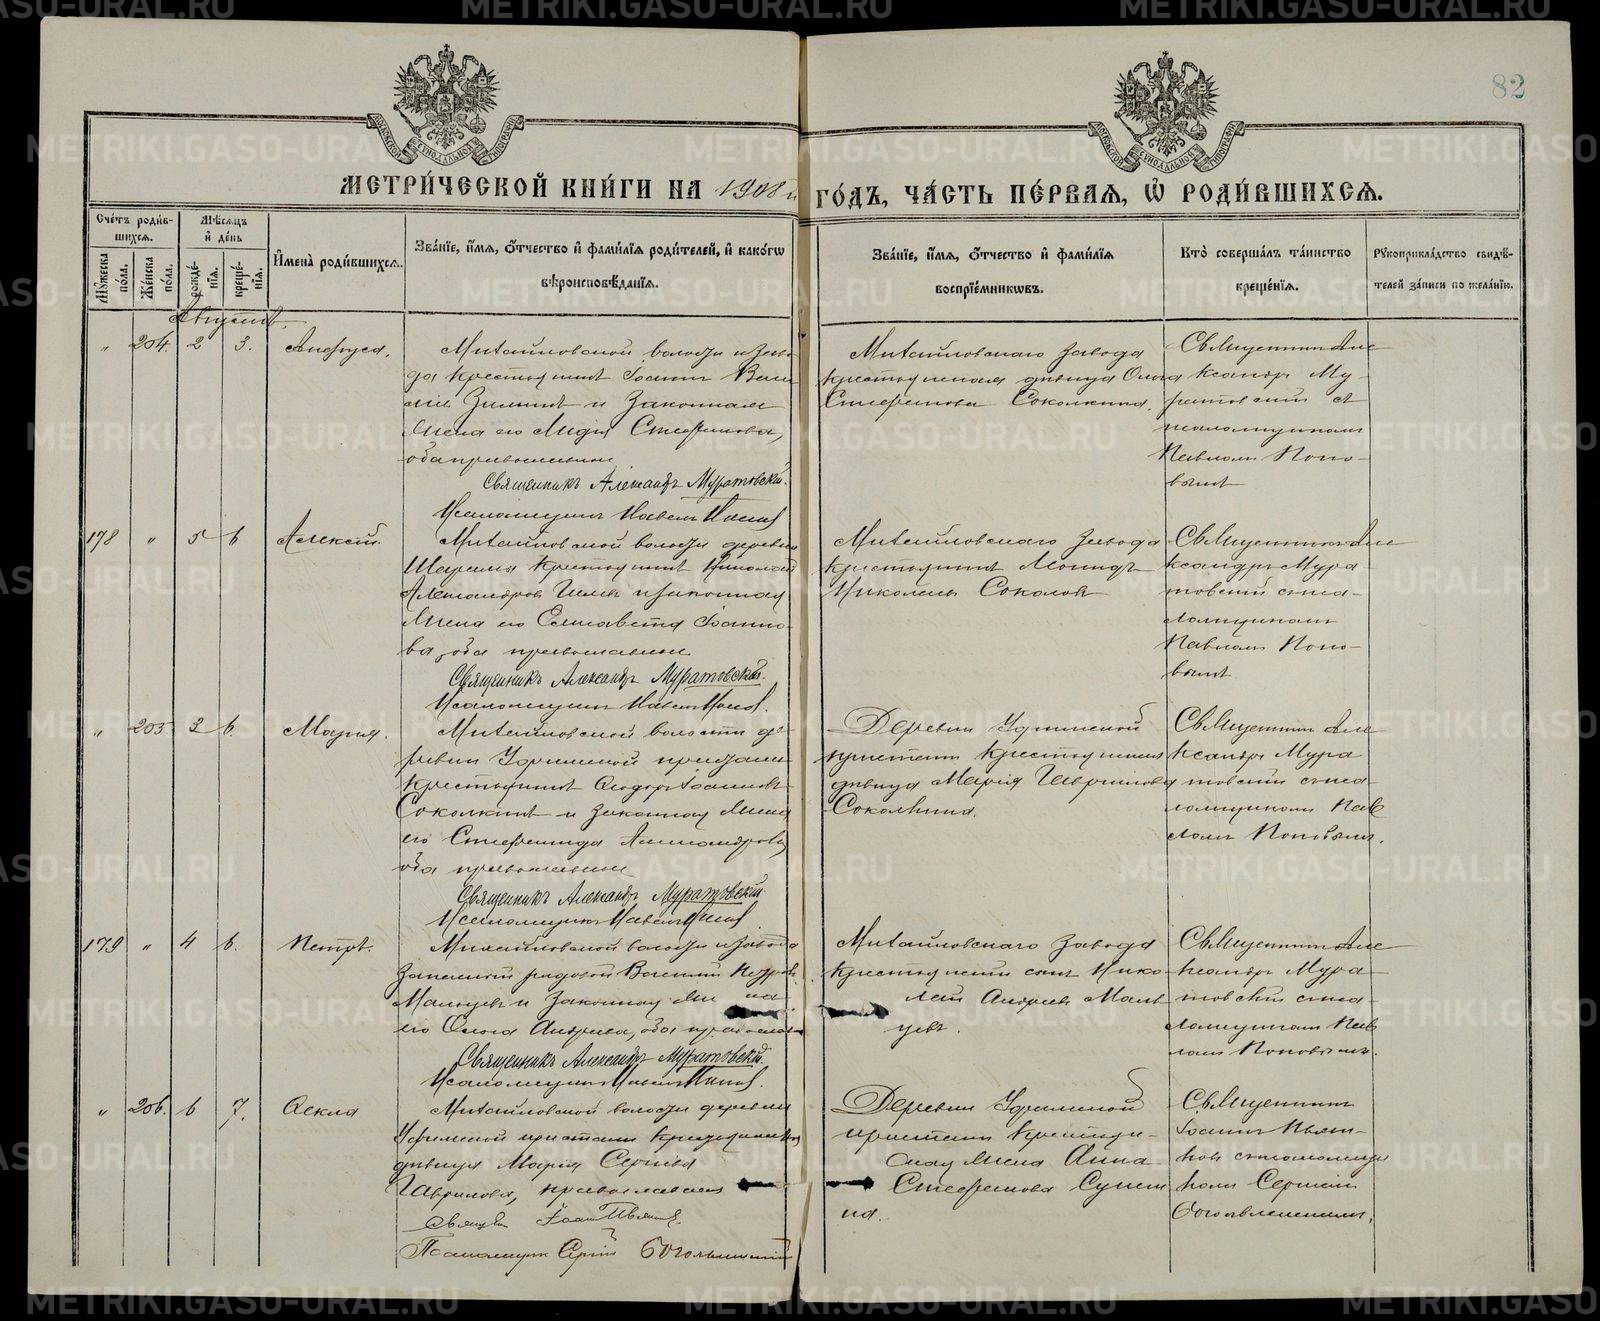 82
МЕТРИ́ЧЕСКОЙ КНИ́ГИ НА 1908й ГО́ДЪ, ЧА́СТЬ ПЕ́РВАЯ, Ѽ РОДИ́ВШИХСЯ.
Сче́тъ роди́в-
шихся.
Му́жеска по́ла.
Же́нска по́ла.
Мѣ́сяцъ
и де́нь
рожде́-
нїя.
креще́-
нїя.
Имена̀ роди́вшихся.
Зва́нїе, и́мя, о́тчество и фами́лїя роди́телей, и како́гѡ
вѣроисповѣ́данїя.
Зва́нїе, и́мя, о́тчество и фами́лїя
воспрїе́мникѡвъ.
Кто̀ соверша́лъ та́инство
креще́нїя.
Рукоприкла́дство свидѣ́-
телей за́писи по жела́нїю.
Августъ.
" 204. 2 3.
Михайловской волости и заво-
да крестьянинъ Іоаннъ Васи
и законная
жена его Лидія Стефанова,
оба православные
Священникъ Александръ Муратовскій.
Псаломщикъ Павелъ Поповъ
Михайловскаго завода
крестьянская дѣвица Ольга
Стефанова Соколкина.
Священникъ Але
ксандръ Му-
ратовскій съ
псаломщикомъ
Павломъ Попо-
вымъ
178 " 5 6 Алексій.
Михайловской волости деревни
Шарама крестьянинъ Николай
Александровъ и законная
жена его Елисавета Іоанно-
ва, оба православные
Священникъ Александръ Муратовскій.
Псаломщикъ Павелъ Поповъ.
Михайловскаго завода
крестьянинъ Леонидъ
Николаевъ Соколовъ
Священникъ Але
ксандръ Мура-
товскій съ пса-
ломщикомъ
Павломъ Попо-
вымъ
" 205 3 6. Марія.
Михайловской волости де-
ревни Уфимской пристани
крестьянинъ Ѳеодоръ Іоанновъ
Соколкинъ и законная жена
его Стефанида Александрова,
оба православные
Священникъ Александръ Муратовскій
Псаломщикъ Павелъ Поповъ.
Деревни Уфимской
пристани крестьянская
дѣвица Марія Гаврилова
Соколкина.
Священникъ Але
ксандръ Мура
товскій съ пса-
ломщикомъ Пав
ломъ Поповымъ.
179 " 4 6. Петръ.
Михайловской волости и завода
запасный рядовой Василій Петровъ
Мальцевъ и законная жена
его Ольга Андреева, оба православн
Священникъ Александръ Муратовскій.
Псаломщикъ Павелъ Поповъ.
Михайловскаго завода
крестьянскій сынъ Нико-
лай Андреевъ Маль
цевъ.
Священникъ Але
ксандръ Мура
товскій съ пса-
ломщикомъ Пав
ломъ Поповымъ.
" 206. 6 7. Ѳекла
Михайловской волости деревни
Уфимской пристани крестьянская
дѣвица Марія Сергіева
Гаврилова, православная
Псаломщикъ Сергій Богоявленскій
Деревни Уфимской
пристани крестьян-
ская жена Анна
Стефанова
на.
Священникъ
Іоаннъ Пьян-
ковъ съ псаломщи
комъ Сергіемъ
Богоявленскимъ.
METRIKI.GASO-URAL.RU